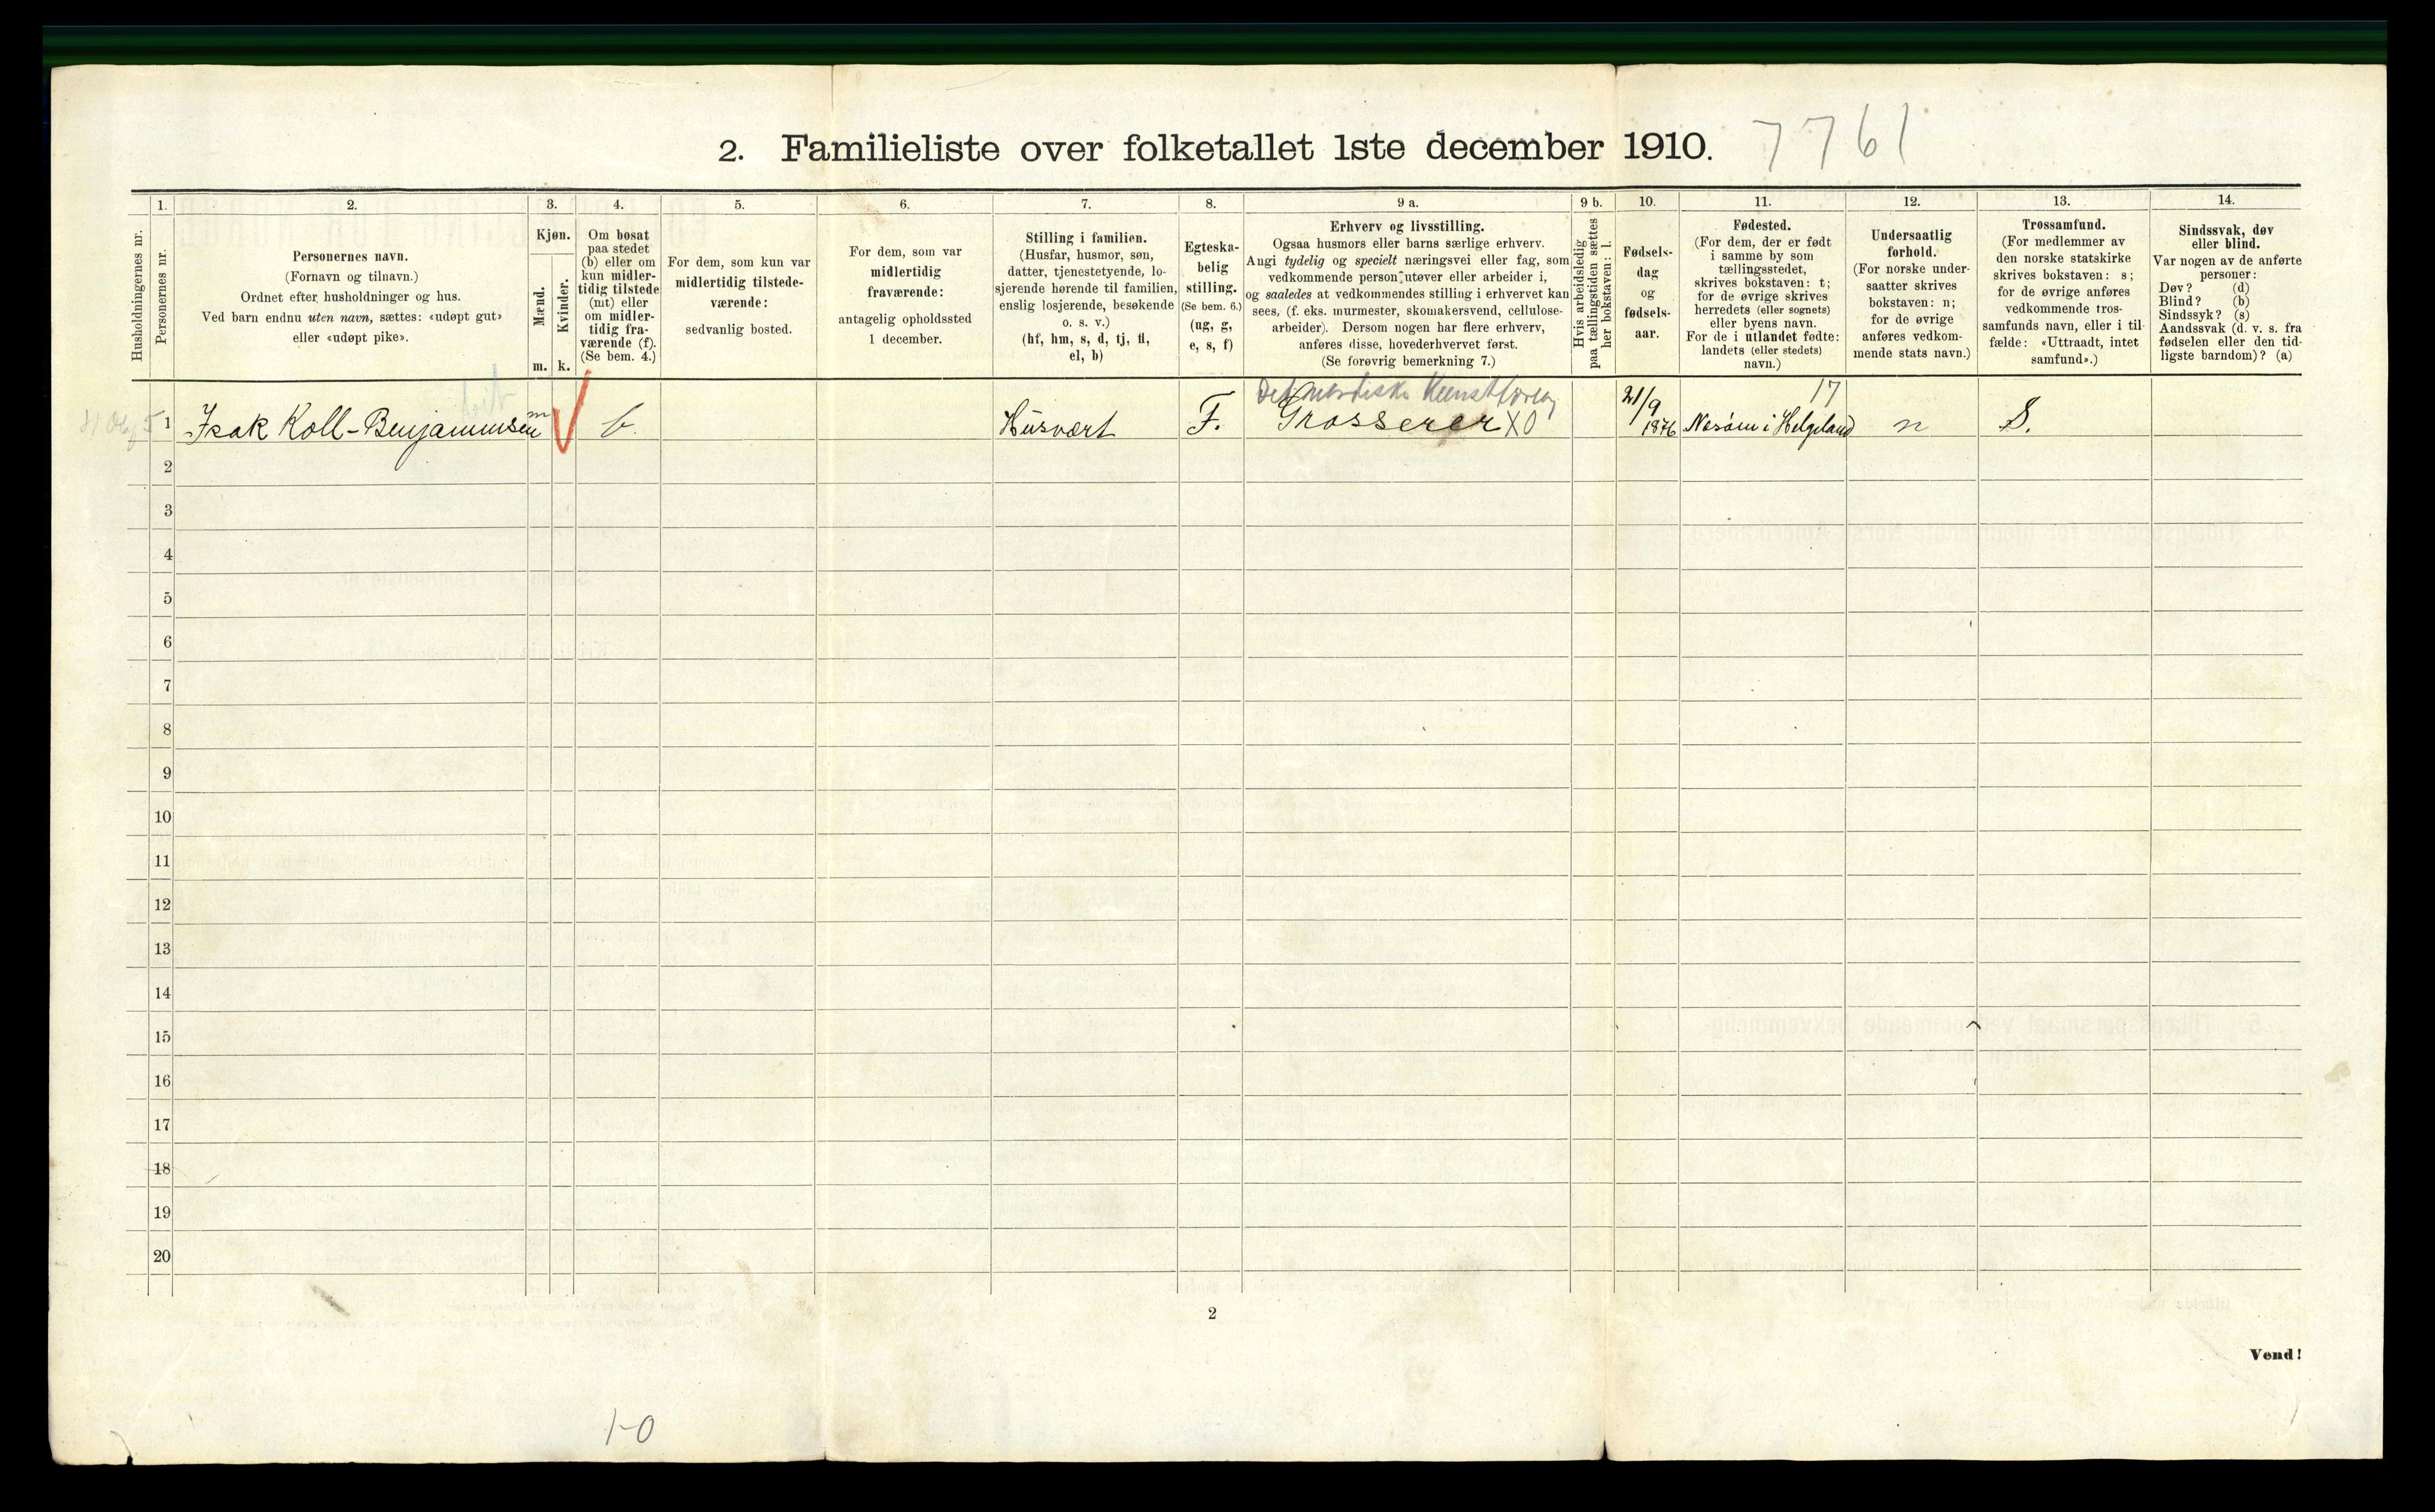 2. Familieliste over folketallet 1ste december 1910. 7761
1. 2. 3. 4. 5. 6. 7. 8. 9 a. 9 b. 10. 11. 12. 13. 14.
Husholdningernes nr.
Personernes nr.
Personernes navn.
(Fornavn og tilnavn.)
Ordnet efter husholdninger og hus.
Ved barn endnu uten navn, sættes: «udøpt gut»
eller «udøpt pike».
Kjøn.
Mænd.
Kvinder.
m. k.
Om bosat
paa stedet
(b) eller om
kun midler-
tidig tilstede
(mt) eller
om midler-
tidig fra-
værende (f).
(Se bem. 4.)
For dem, som kun var
midlertidig tilstede-
værende:
sedvanlig bosted.
For dem, som var
midlertidig
fraværende:
antagelig opholdssted
1 december.
Stilling i familien.
(Husfar, husmor, søn,
datter, tjenestetyende, lo-
sjerende hørende til familien,
enslig losjerende, besøkende
o. s. v.)
(hf, hm, s, d, tj, fl,
el, b)
Egteska-
belig
stilling.
(Se bem. 6.)
(ug, g,
e, s, f)
Erhverv og livsstilling.
Ogsaa husmors eller barns særlige erhverv.
Angi tydelig og specielt næringsvei eller fag, som
vedkommende person utøver eller arbeider i,
og saaledes at vedkommendes stilling i erhvervet kan
sees, (f. eks. murmester, skomakersvend, cellulose-
arbeider). Dersom nogen har flere erhverv,
anføres disse, hovederhvervet først.
(Se forøvrig bemerkning 7.)
Hvis arbeidsledig
paa tællingstiden sættes
her bokstaven: l.
Fødsels-
dag
og
fødsels-
aar.
Fødested.
(For dem, der er født
i samme by som
tællingsstedet,
skrives bokstaven: t;
for de øvrige skrives
herredets (eller sognets)
eller byens navn.
For de i utlandet fødte:
landets (eller stedets)
navn.)
Undersaatlig
forhold.
(For norske under-
saatter skrives
bokstaven: n;
for de øvrige
anføres vedkom-
mende stats navn.)
Trossamfund.
(For medlemmer av
den norske statskirke
skrives bokstaven: s;
for de øvrige anføres
vedkommende tros-
samfunds navn, eller i til-
fælde: «Uttraadt, intet
samfund».)
Sindssvak, døv
eller blind.
Var nogen av de anførte
personer:
Døv? (d)
Blind? (b)
Sindssyk? (s)
Aandssvak (d. v. s. fra
fødselen eller den tid-
ligste barndom)? (a)
Det nordiske Kunstforlag 17
1 Isak Koll-Benjaminsen m b. Husvært F. Grosserer XO 21/9 1876 Nesøm i Helgeland n S.
2
3
4
5
6
7
8
9
10
11
12
13
14
15
16
17
18
19
20
2
Vend!
1-0